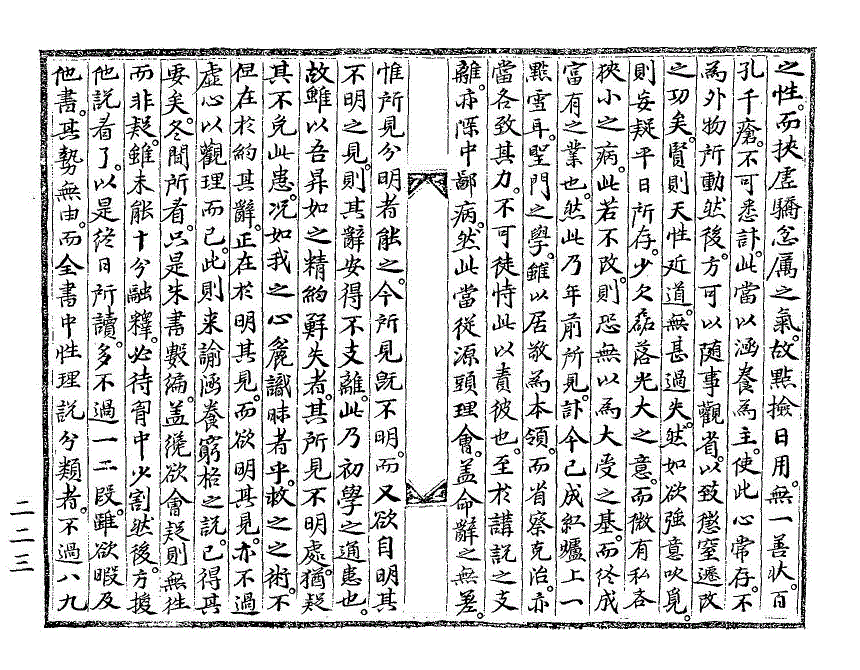 之性。而挾虛驕忿厲之氣。故點撿日用。無一善狀。百
孔千瘡。不可悉訃。此當以涵養爲主。使此心常存。不
爲外物所動然後。方可以随事觀省。以致懲窒遷改
之功矣。賢則天性近道。無甚過失。然如欲強意吹覔。
則妄疑平日所存。少欠磊落光大之意。而微有私吝
狹小之病。此若不改。則恐無以爲大受之基。而終成
富有之業也。然此乃年前所見。計今已成紅爐上一
點雪耳。聖門之學。雖以居敬爲本領。而省察克治。亦
當各致其力。不可徒恃此以責彼也。至於講說之支
離。亦陳中鄙病。然此當從源頭理會。蓋命辭之無差。
惟所見分明者能之。今所見旣不明。而又欲自明其
不明之見。則其辭安得不支離。此乃初學之通患也。
故雖以吾昇如之精約鮮失者。其所見不明處。猶疑
其不免此患。况如我之心麁識昧者乎。救之之術。不
但在於約其辭。正在於明其見。而欲明其見。亦不過
虛心以觀理而已。此則来諭涵養窮格之說。已得其
要矣。冬間所看。只是朱書數編。盖纔欲會疑則無往
而非疑。雖未能十分融釋。必待胷中少割然後。方援
他說看了。以是終日所讀。多不過一二段。雖欲暇及
他書。其勢無由。而全書中性理說分類者。不過八九
二二三